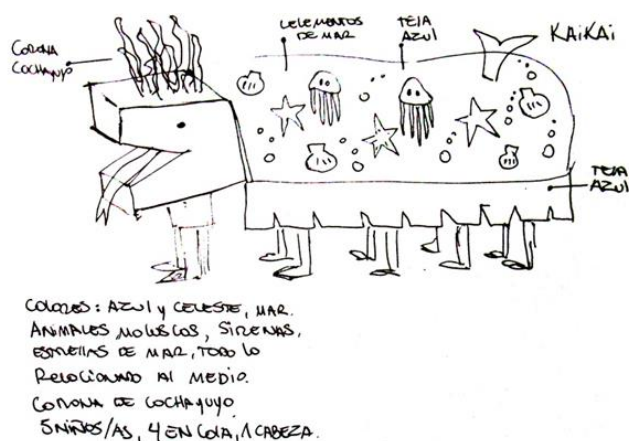 CORONA
COCHAYUYO
ELEMENTOS
DE MAR
TELA
AZUL
KAIKAI
TELA
AZUL
COLORES: AZUL y CELESTE, MAR.
ANIMALES, MOLUSCOS, SIRENAS,
ESTRELLAS DE MAR, TODO LO
RELACIONADO AL MEDIO.
CORONA DE COCHAYUYO
5 NIÑOS/AS, 4 EN COLA, 1 CABEZA.